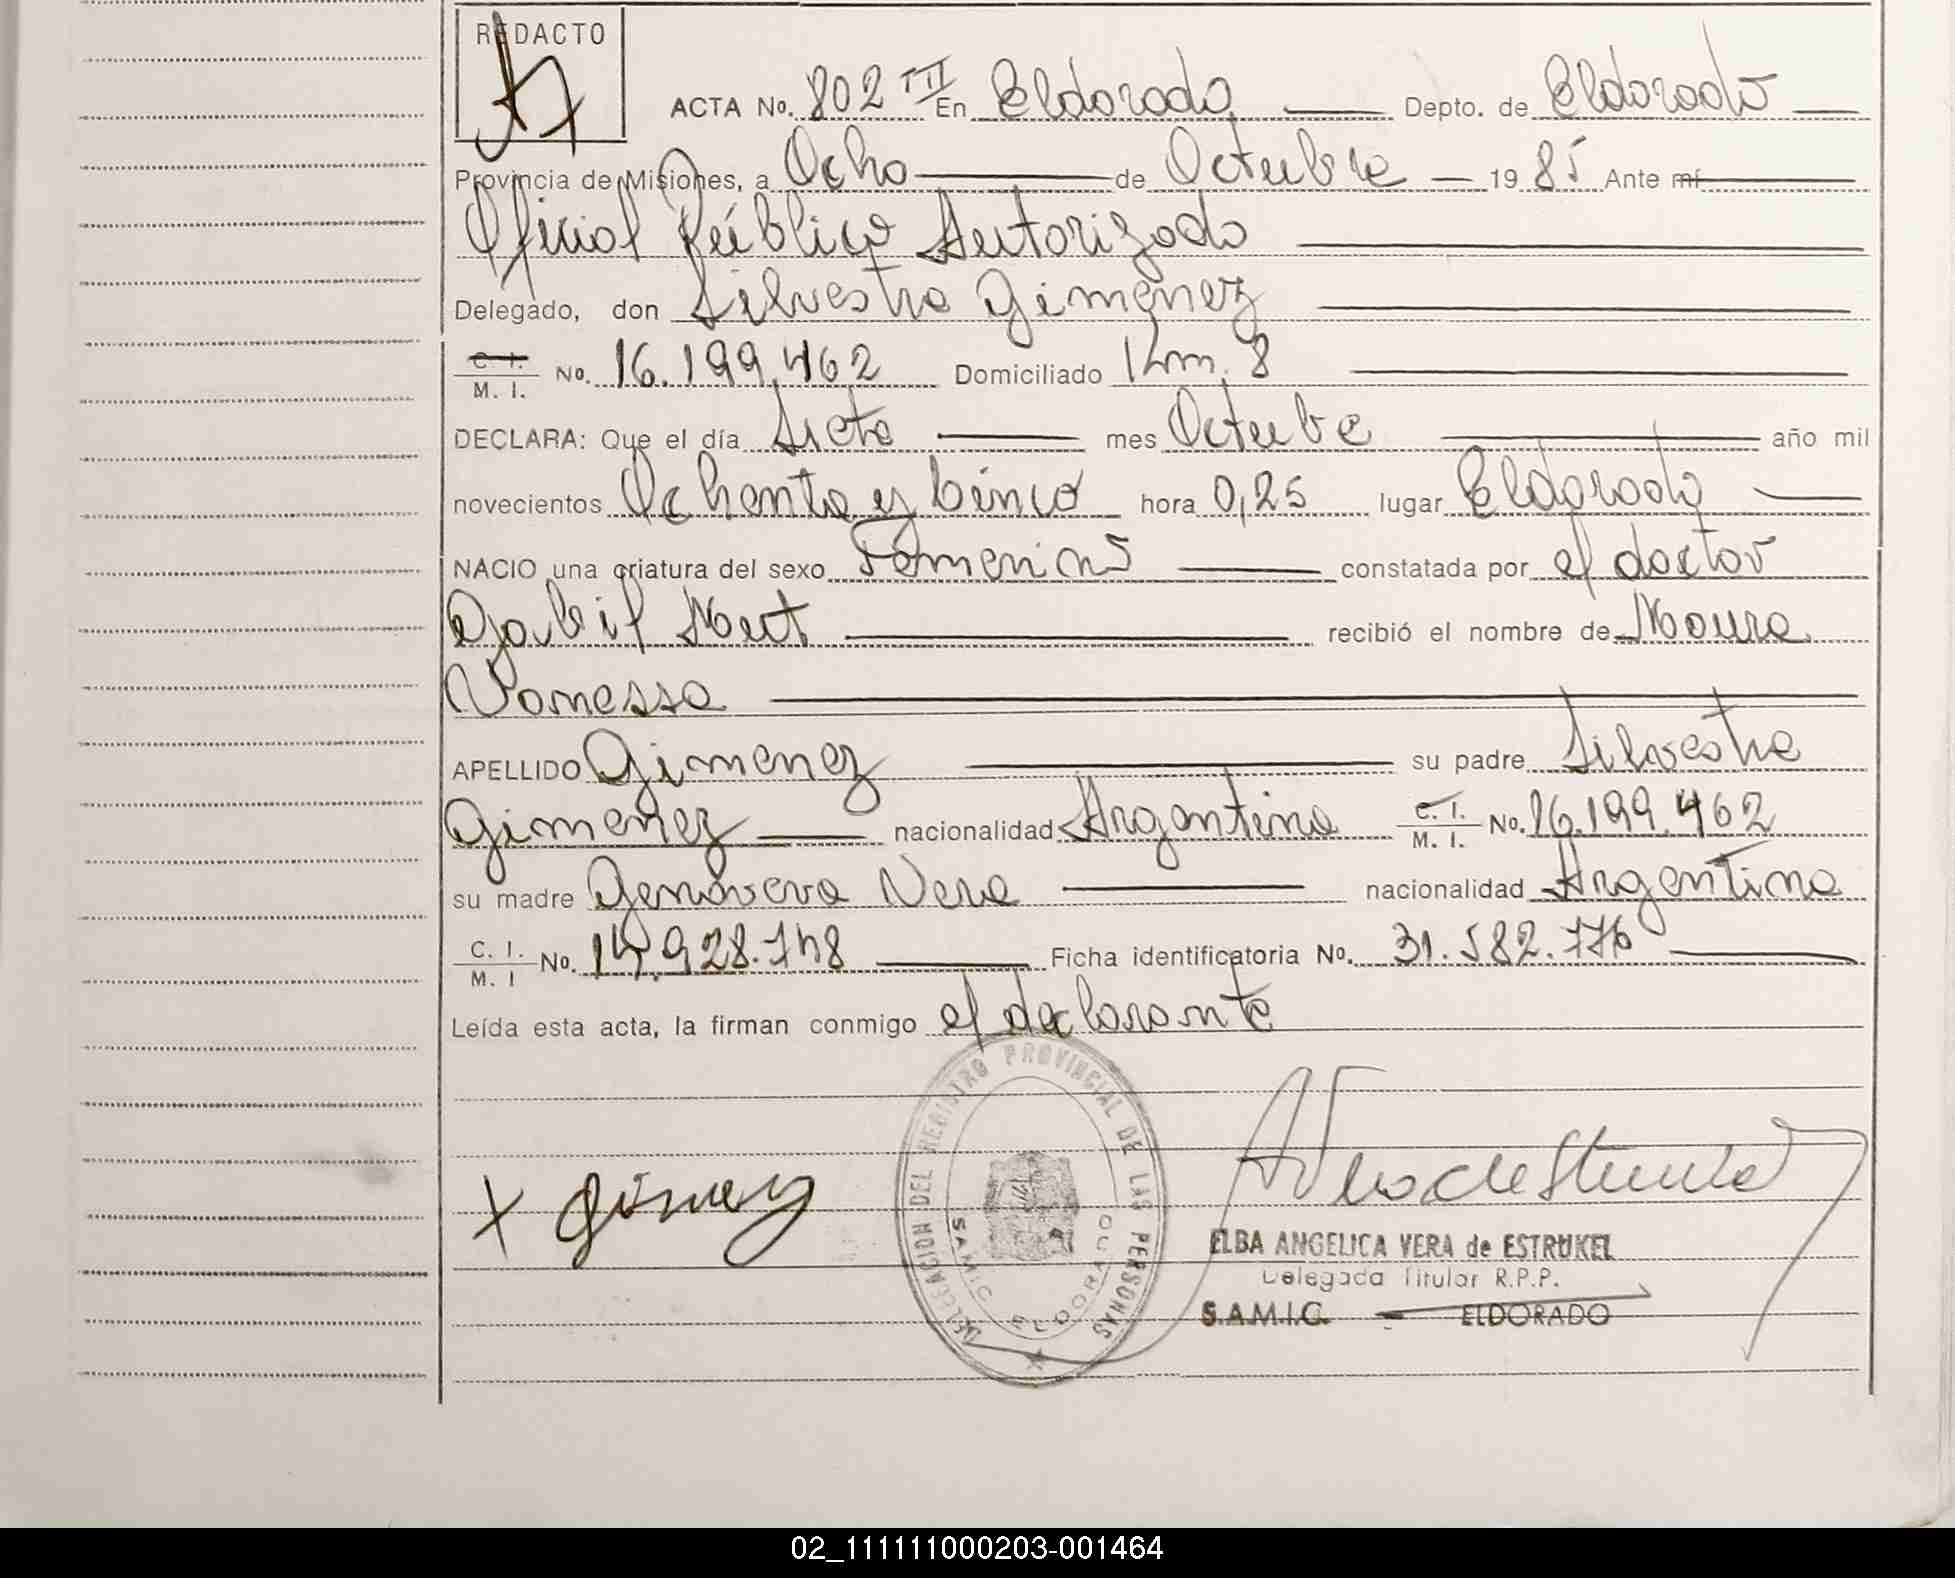 REDACTO
ACTA No. 802 TIII En Eldorado Depto. de Eldorado
Provincia de Misiones, a Ocho de Octubre 1985 Ante mí
Oficial Público Autorizado
Delegado, don Silvestre Gimenez
C. I. / M. I. No. 16.199.462 Domiciliado Km. 8
DECLARA: Que el día Siete mes Octubre año mil
novecientos Ochenta y Cinco hora 0,25 lugar Eldorado
NACIO una criatura del sexo Femenino constatada por el doctor
recibió el nombre de Moura
Vanessa
APELLIDO Gimenez su padre Silvestre
Gimenez nacionalidad Argentina C. I. / M. I. No. 16.199.462
su madre Genoveva Vera nacionalidad Argentina
C. I. / M. I No. 14.928.748 Ficha identificatoria No. 31.582.776
Leída esta acta, la firman conmigo el declarante
DELEGACION DEL REGISTRO PROVINCIAL DE LAS PERSONAS
SAMIC ELDORADO
ELBA ANGELICA VERA de ESTRUKEL
Delegada Titular R.P.P.
S.A.M.I.C. ELDORADO
02_111111000203-001464